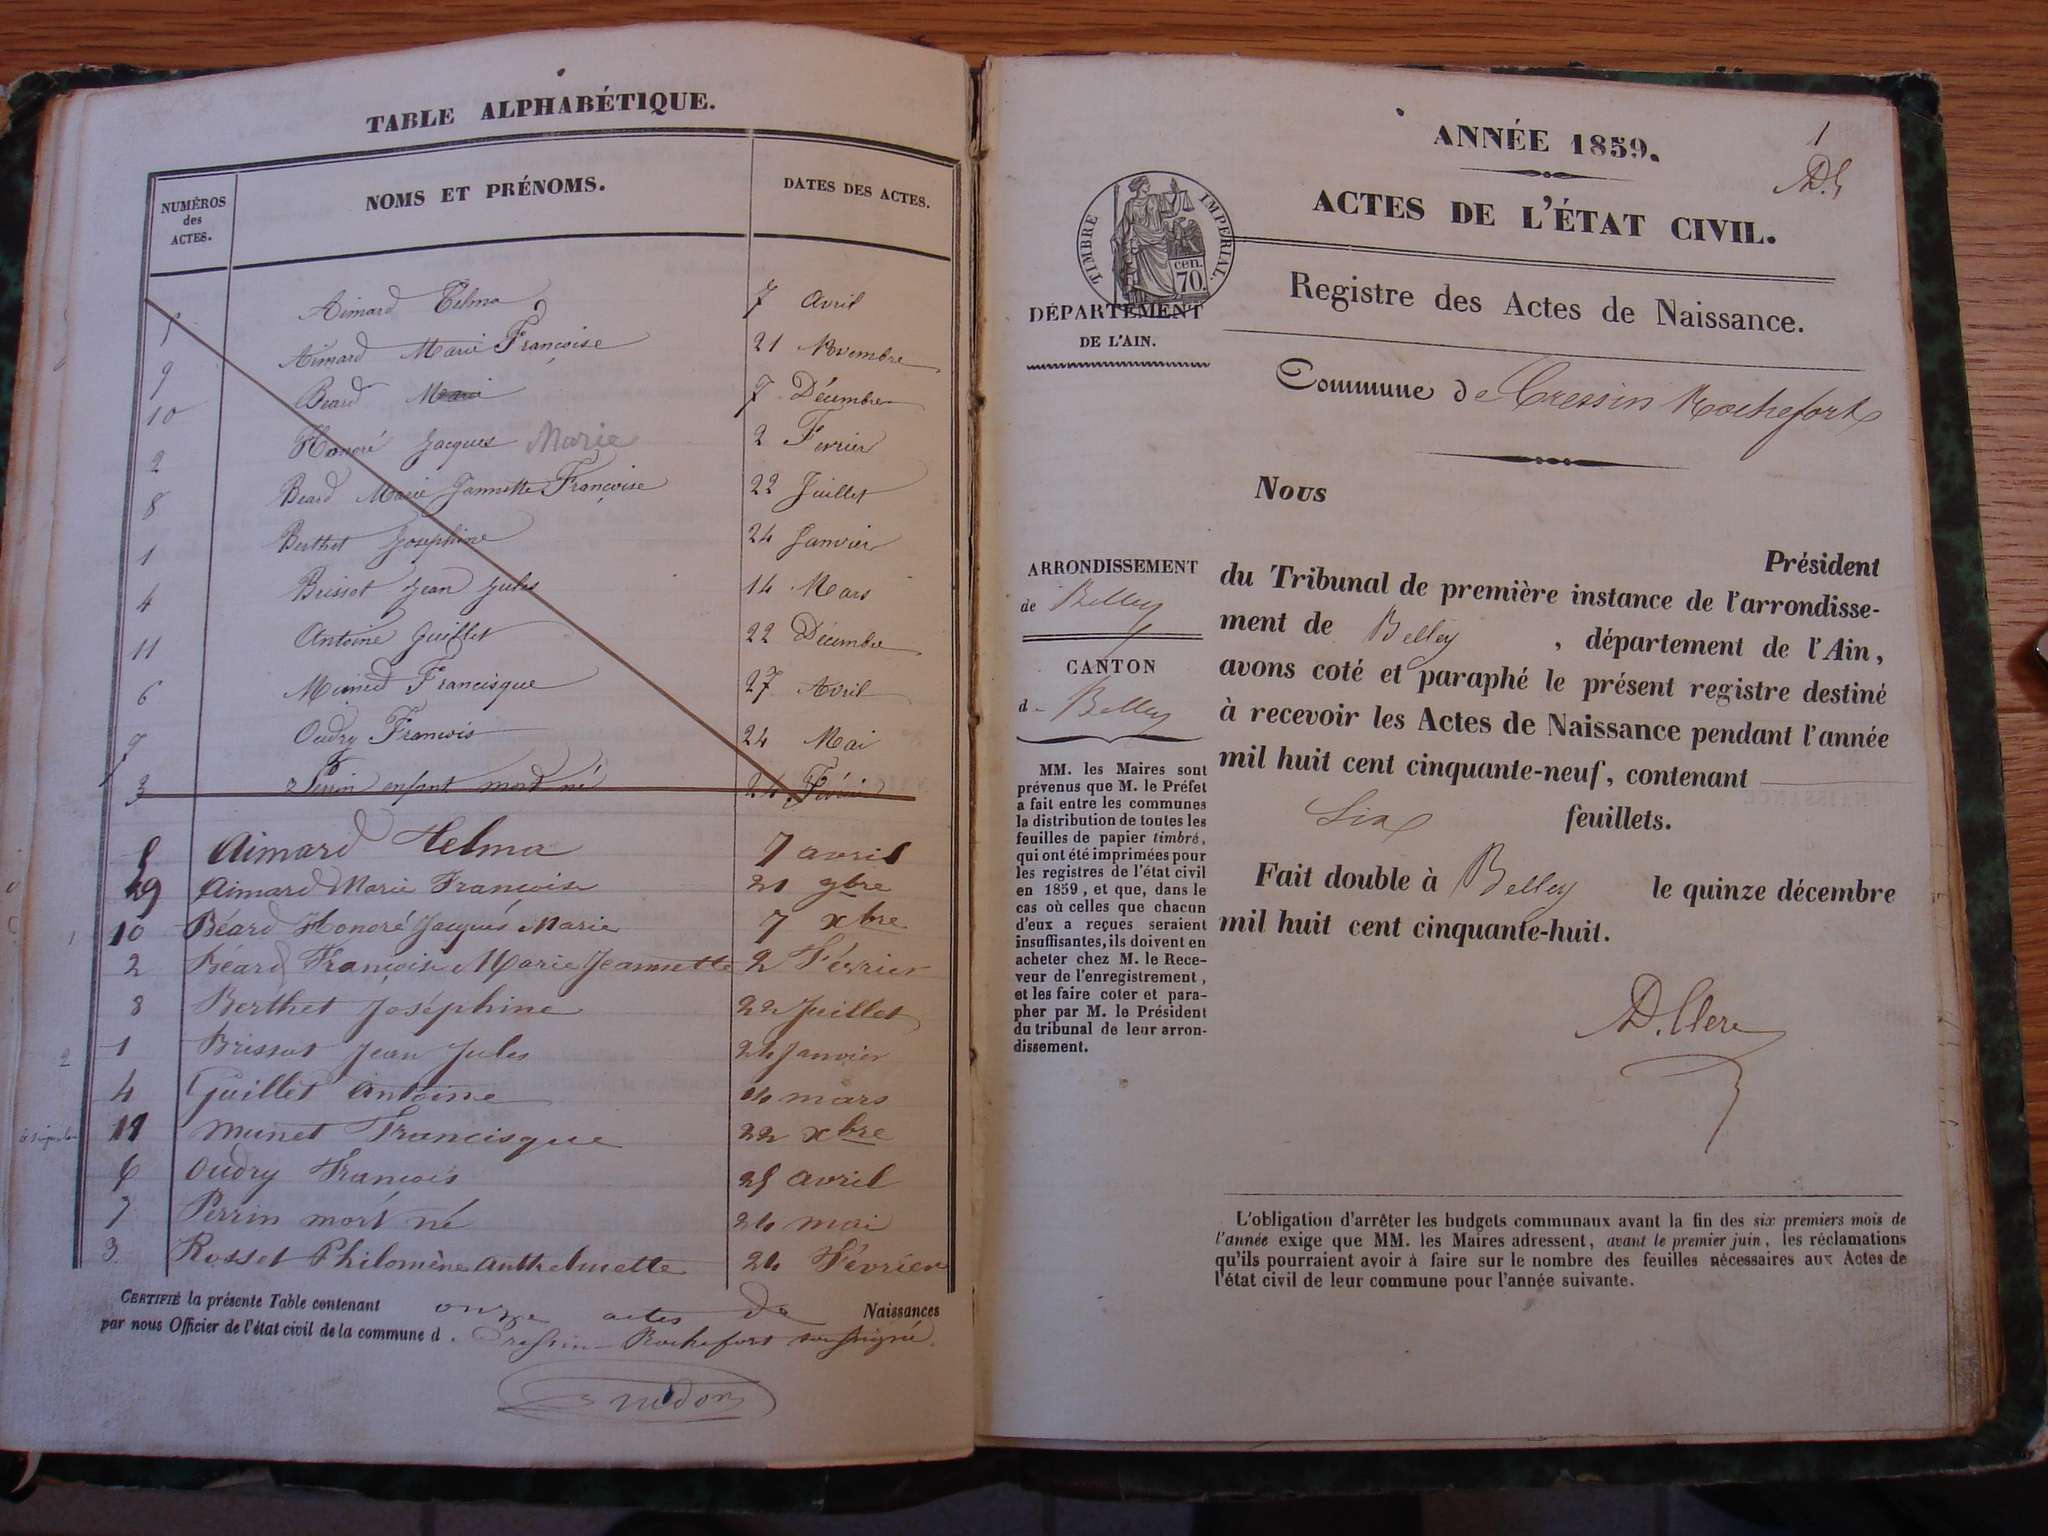 TABLE ALPHABÉTIQUE.
NUMÉROS des ACTES.
NOMS ET PRÉNOMS.
DATES DES ACTES.
5 Aimard Telma 7 Avril
9 Aimard Marie Françoise 21 Novembre
10 Béard Marie 7 Décembre
2 Honoré Jacques Marie 2 Fevrier
8 Beard Marie Jannette Françoise 22 Juillet
1 Berthet Josephine 24 Janvier
4 Brissot Jean Jules 14 Mars
11 Antoine Guillet 22 Décembre
6 Francisque 27 Avril
7 Oudry Francois 24 Mai
3 Perrin enfant mort né 24 Février
5 Aimard Telma 7 avril
9 Aimard Marie Françoise 21 9bre
10 Béard Honoré Jacques Marie 7 xbre
2 Béard Françoise Marie Jeannette 2 Février
8 Berthet Joséphine 22 Juillet
1 Brissot Jean Jules 24 Janvier
4 Guillet Antoine 14 mars
11 Munet Francisque 22 xbre
6 Oudry Francois 25 avril
7 Perrin mort né 24 mai
3. Rosset Philomène Anthelmette 24 Février
CERTIFIÉ la présente Table contenant onze actes de Naissances
par nous Officier de l'état civil de la commune d. Cressin-Rochefort soussigné.
1
D.C
ANNÉE 1859.
ACTES DE L'ÉTAT CIVIL.
TIMBRE IMPÉRIAL.
70 cen.
Registre des Actes de Naissance.
DÉPARTEMENT
DE L'AIN.
Commune de Cressin Rochefort
Nous
Président
du Tribunal de première instance de l'arrondisse-
ment de Belley, département de l'Ain,
avons coté et paraphé le présent registre destiné
à recevoir les Actes de Naissance pendant l'année
mil huit cent cinquante-neuf, contenant
Six feuillets.
Fait double à Belley le quinze décembre
mil huit cent cinquante-huit.
D. Clerc
ARRONDISSEMENT
de Belley
CANTON
de Belley
MM. les Maires sont
prévenus que M. le Préfet
a fait entre les communes
la distribution de toutes les
feuilles de papier timbré,
qui ont été imprimées pour
les registres de l'état civil
en 1859, et que, dans le
cas où celles que chacun
d'eux a reçues seraient
insuffisantes, ils doivent en
acheter chez M. le Rece-
veur de l'enregistrement,
et les faire coter et para-
pher par M. le Président
du tribunal de leur arron-
dissement.
L'obligation d'arrêter les budgets communaux avant la fin des six premiers mois de
l'année exige que MM. les Maires adressent, avant le premier juin, les réclamations
qu'ils pourraient avoir à faire sur le nombre des feuilles nécessaires aux Actes de
l'état civil de leur commune pour l'année suivante.